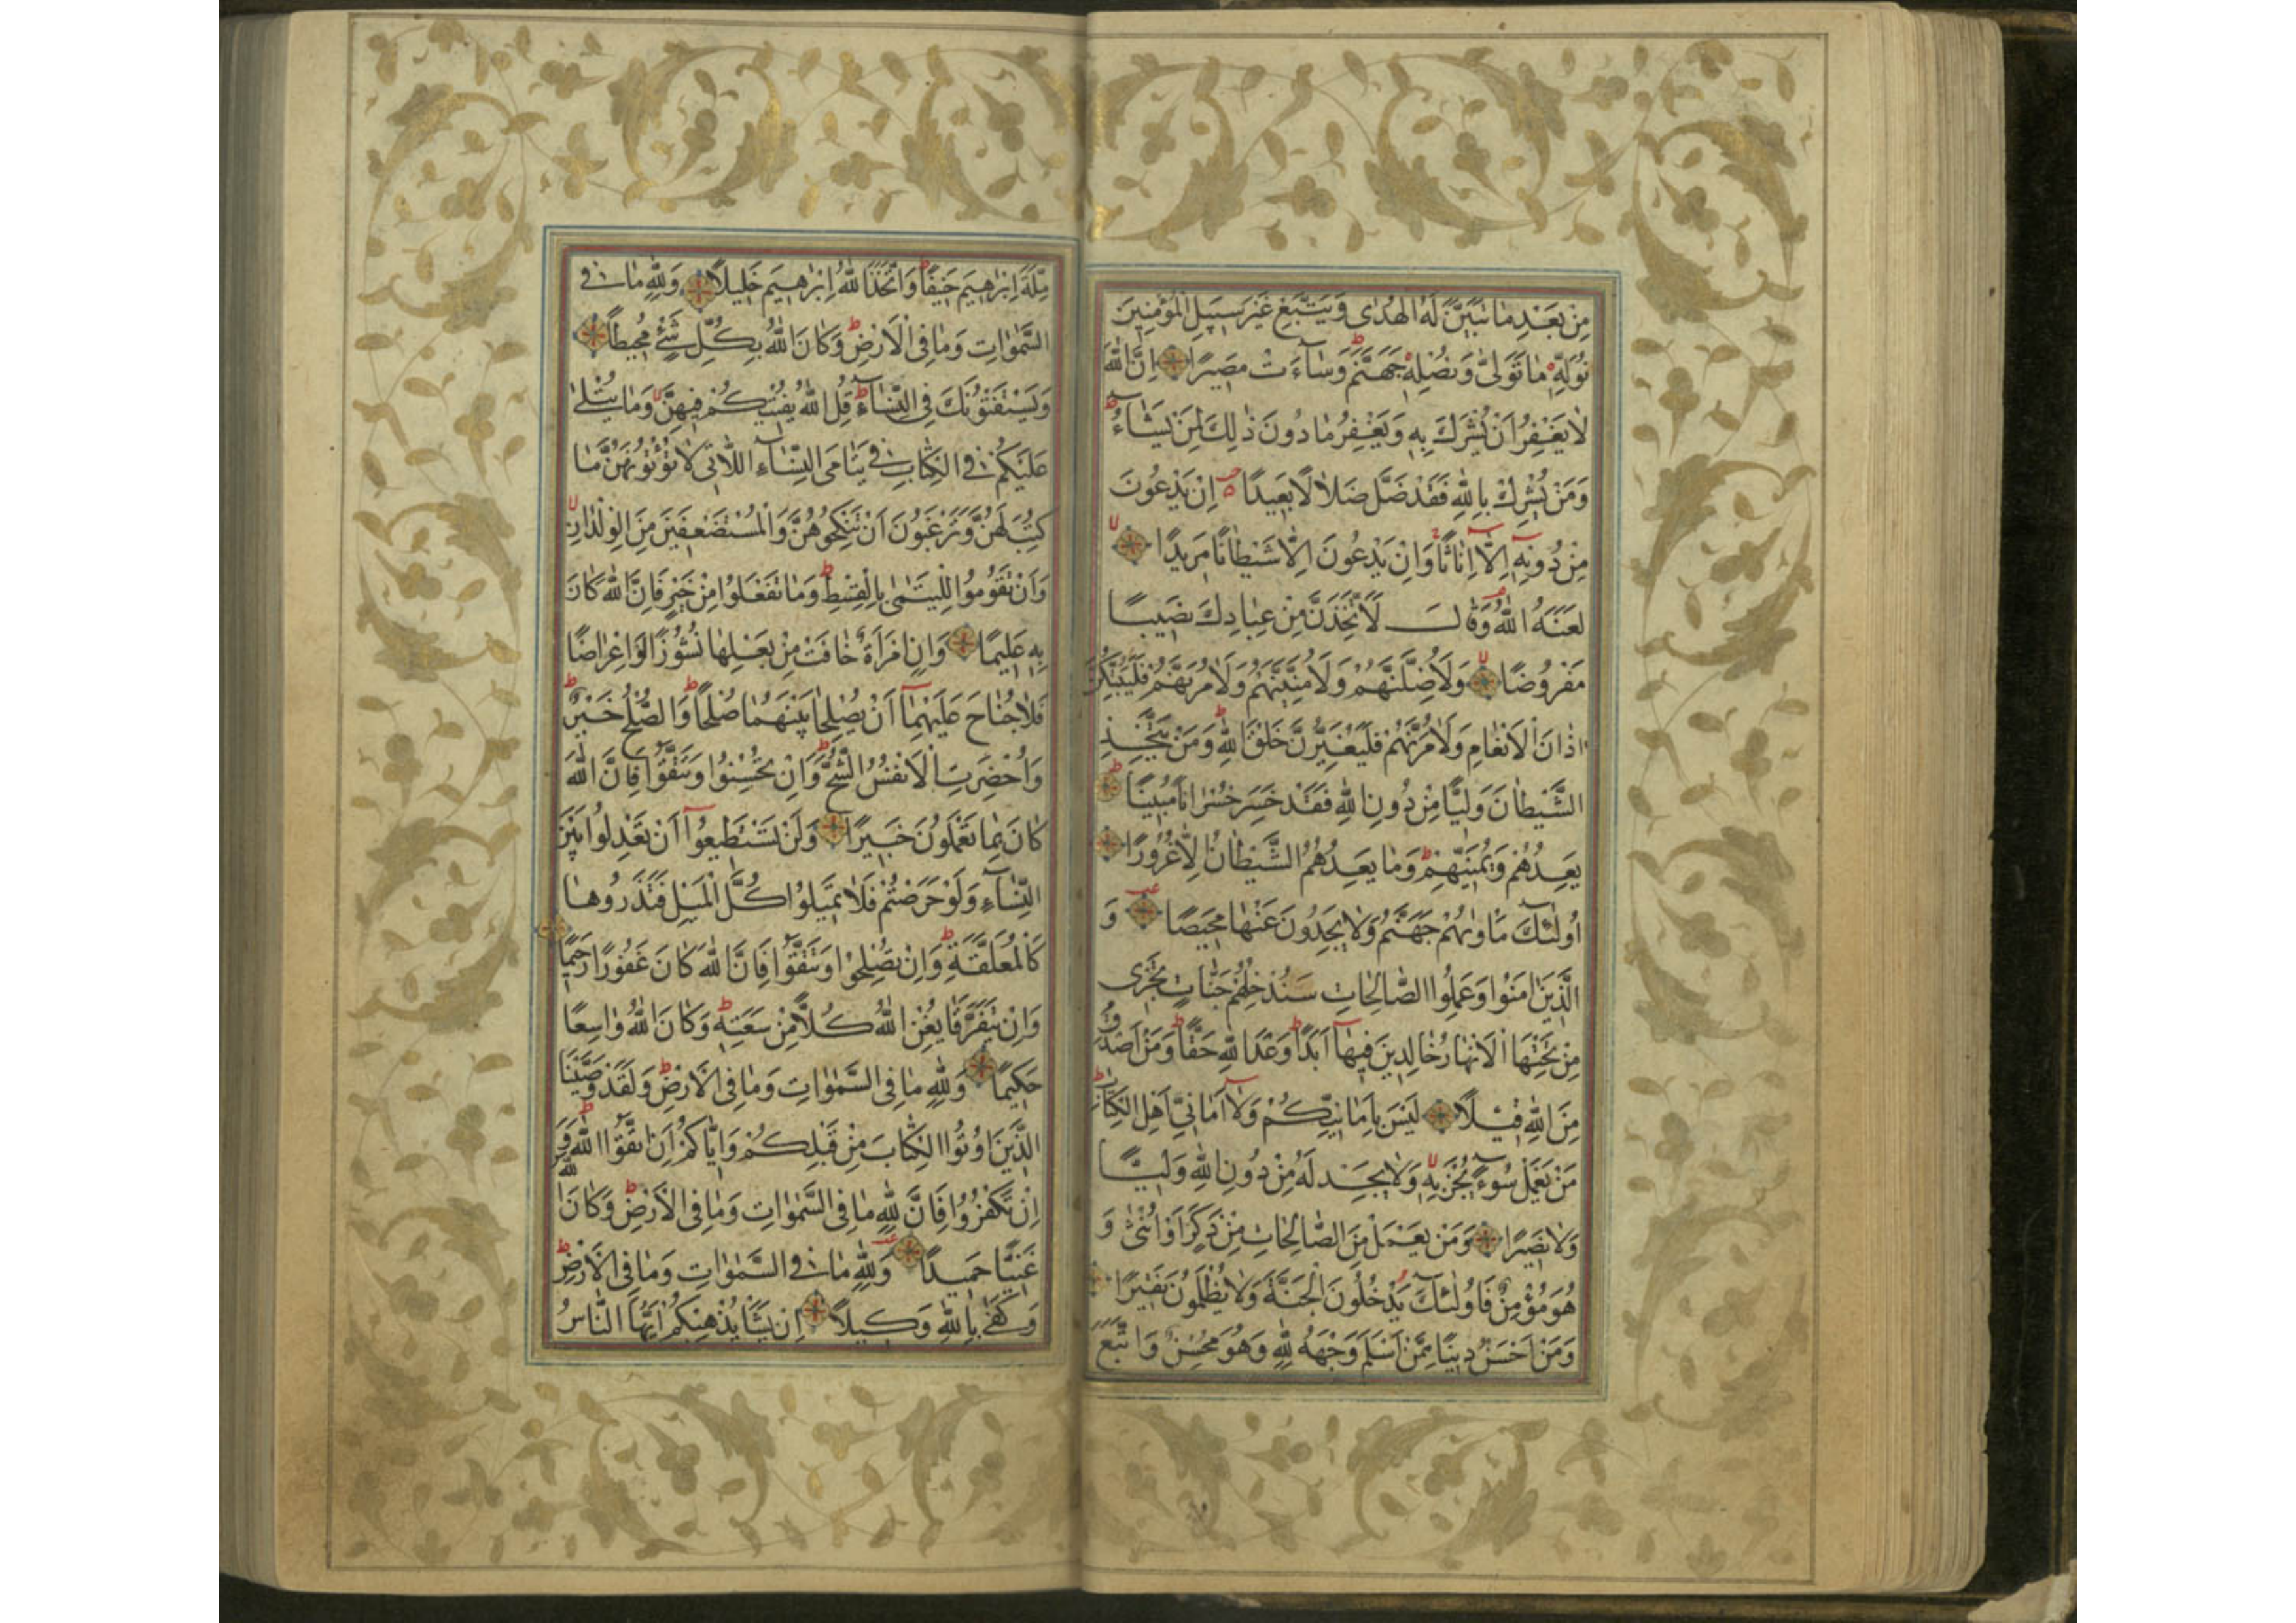 مِنْ بَعْدِ مَا تَبَيَّنَ لَهُ الْهُدٰى وَيَتَّبِعْ غَيْرَ سَبِيلِ الْمُؤْمِنِينَ
نُوَلِّهٖ مَا تَوَلّٰى وَنُصْلِهٖ جَهَنَّمَ وَسَآءَتْ مَصِيرًا اِنَّ اللّٰهَ
لَا يَغْفِرُ اَنْ يُشْرَكَ بِهٖ وَيَغْفِرُ مَا دُونَ ذٰلِكَ لِمَنْ يَشَآءُ ط
وَمَنْ يُشْرِكْ بِاللّٰهِ فَقَدْ ضَلَّ ضَلَالًا بَعِيدًا اِنْ يَدْعُونَ
مِنْ دُونِهٖٓ اِلَّٓا اِنَاثًا وَاِنْ يَدْعُونَ اِلَّا شَيْطَانًا مَرِيدًا لا
لَعَنَهُ اللّٰهُ وَقَالَ لَاَتَّخِذَنَّ مِنْ عِبَادِكَ نَصِيبًا
مَفْرُوضًا لا وَلَاُضِلَّنَّهُمْ وَلَاُمَنِّيَنَّهُمْ وَلَاٰمُرَنَّهُمْ فَلَيُبَتِّكُنَّ
اٰذَانَ الْاَنْعَامِ وَلَاٰمُرَنَّهُمْ فَلَيُغَيِّرُنَّ خَلْقَ اللّٰهِ ط وَمَنْ يَتَّخِذِ
الشَّيْطَانَ وَلِيًّا مِنْ دُونِ اللّٰهِ فَقَدْ خَسِرَ خُسْرَانًا مُبِينًا ط
يَعِدُهُمْ وَيُمَنِّيهِمْ ط وَمَا يَعِدُهُمُ الشَّيْطَانُ اِلَّا غُرُورًا
اُولٰٓئِكَ مَاْوٰيهُمْ جَهَنَّمُ وَلَا يَجِدُونَ عَنْهَا مَحِيصًا وَ
الَّذِينَ اٰمَنُوا وَعَمِلُوا الصَّالِحَاتِ سَنُدْخِلُهُمْ جَنَّاتٍ تَجْرٖى
مِنْ تَحْتِهَا الْاَنْهَارُ خَالِدِينَ فِيهَآ اَبَدًا ط وَعْدَ اللّٰهِ حَقًّا ط وَمَنْ اَصْدَقُ
مِنَ اللّٰهِ قِيلًا لَيْسَ بِاَمَانِيِّكُمْ وَلَآ اَمَانِيِّ اَهْلِ الْكِتَابِ ط
مَنْ يَعْمَلْ سُوٓءًا يُجْزَ بِهٖ لا وَلَا يَجِدْ لَهُ مِنْ دُونِ اللّٰهِ وَلِيًّا
وَلَا نَصِيرًا وَمَنْ يَعْمَلْ مِنَ الصَّالِحَاتِ مِنْ ذَكَرٍ اَوْ اُنْثٰى وَ
هُوَ مُؤْمِنٌ فَاُولٰٓئِكَ يَدْخُلُونَ الْجَنَّةَ وَلَا يُظْلَمُونَ نَقِيرًا
وَمَنْ اَحْسَنُ دِينًا مِمَّنْ اَسْلَمَ وَجْهَهُ لِلّٰهِ وَهُوَ مُحْسِنٌ وَاتَّبَعَ
مِلَّةَ اِبْرٰهِيمَ حَنِيفًا ط وَاتَّخَذَ اللّٰهُ اِبْرٰهِيمَ خَلِيلًا وَلِلّٰهِ مَا فِى
السَّمٰوَاتِ وَمَا فِى الْاَرْضِ ط وَكَانَ اللّٰهُ بِكُلِّ شَىْءٍ مُحِيطًا
وَيَسْتَفْتُونَكَ فِى النِّسَآءِ ط قُلِ اللّٰهُ يُفْتِيكُمْ فِيهِنَّ لا وَمَا يُتْلٰى
عَلَيْكُمْ فِى الْكِتَابِ فِى يَتَامَى النِّسَآءِ اللَّاتِى لَا تُؤْتُونَهُنَّ مَا
كُتِبَ لَهُنَّ وَتَرْغَبُونَ اَنْ تَنْكِحُوهُنَّ وَالْمُسْتَضْعَفِينَ مِنَ الْوِلْدَانِ لا
وَاَنْ تَقُومُوا لِلْيَتَامٰى بِالْقِسْطِ ط وَمَا تَفْعَلُوا مِنْ خَيْرٍ فَاِنَّ اللّٰهَ كَانَ
بِهٖ عَلِيمًا وَاِنِ امْرَاَةٌ خَافَتْ مِنْ بَعْلِهَا نُشُوزًا اَوْ اِعْرَاضًا
فَلَا جُنَاحَ عَلَيْهِمَآ اَنْ يُصْلِحَا بَيْنَهُمَا صُلْحًا ط وَالصُّلْحُ خَيْرٌ ط
وَاُحْضِرَتِ الْاَنْفُسُ الشُّحَّ ط وَاِنْ تُحْسِنُوا وَتَتَّقُوا فَاِنَّ اللّٰهَ
كَانَ بِمَا تَعْمَلُونَ خَبِيرًا وَلَنْ تَسْتَطِيعُوٓا اَنْ تَعْدِلُوا بَيْنَ
النِّسَآءِ وَلَوْ حَرَصْتُمْ فَلَا تَمِيلُوا كُلَّ الْمَيْلِ فَتَذَرُوهَا
كَالْمُعَلَّقَةِ ط وَاِنْ تُصْلِحُوا وَتَتَّقُوا فَاِنَّ اللّٰهَ كَانَ غَفُورًا رَحِيمًا
وَاِنْ يَتَفَرَّقَا يُغْنِ اللّٰهُ كُلًّا مِنْ سَعَتِهٖ ط وَكَانَ اللّٰهُ وَاسِعًا
حَكِيمًا وَلِلّٰهِ مَا فِى السَّمٰوَاتِ وَمَا فِى الْاَرْضِ ط وَلَقَدْ وَصَّيْنَا
الَّذِينَ اُوتُوا الْكِتَابَ مِنْ قَبْلِكُمْ وَاِيَّاكُمْ اَنِ اتَّقُوا اللّٰهَ ط وَ
اِنْ تَكْفُرُوا فَاِنَّ لِلّٰهِ مَا فِى السَّمٰوَاتِ وَمَا فِى الْاَرْضِ ط وَكَانَ اللّٰهُ
غَنِيًّا حَمِيدًا وَلِلّٰهِ مَا فِى السَّمٰوَاتِ وَمَا فِى الْاَرْضِ ط
وَكَفٰى بِاللّٰهِ وَكِيلًا اِنْ يَشَاْ يُذْهِبْكُمْ اَيُّهَا النَّاسُ